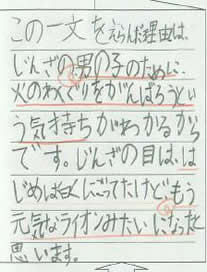 この一文をえらんだ理由は、
じんざの男の子のために、
火のわくぐりをがんばろうとい
う気持ちがわかるから
です。じんざの目は、は
じめは白くにごってたけどもう
元気なライオンみたいになったと
思います。